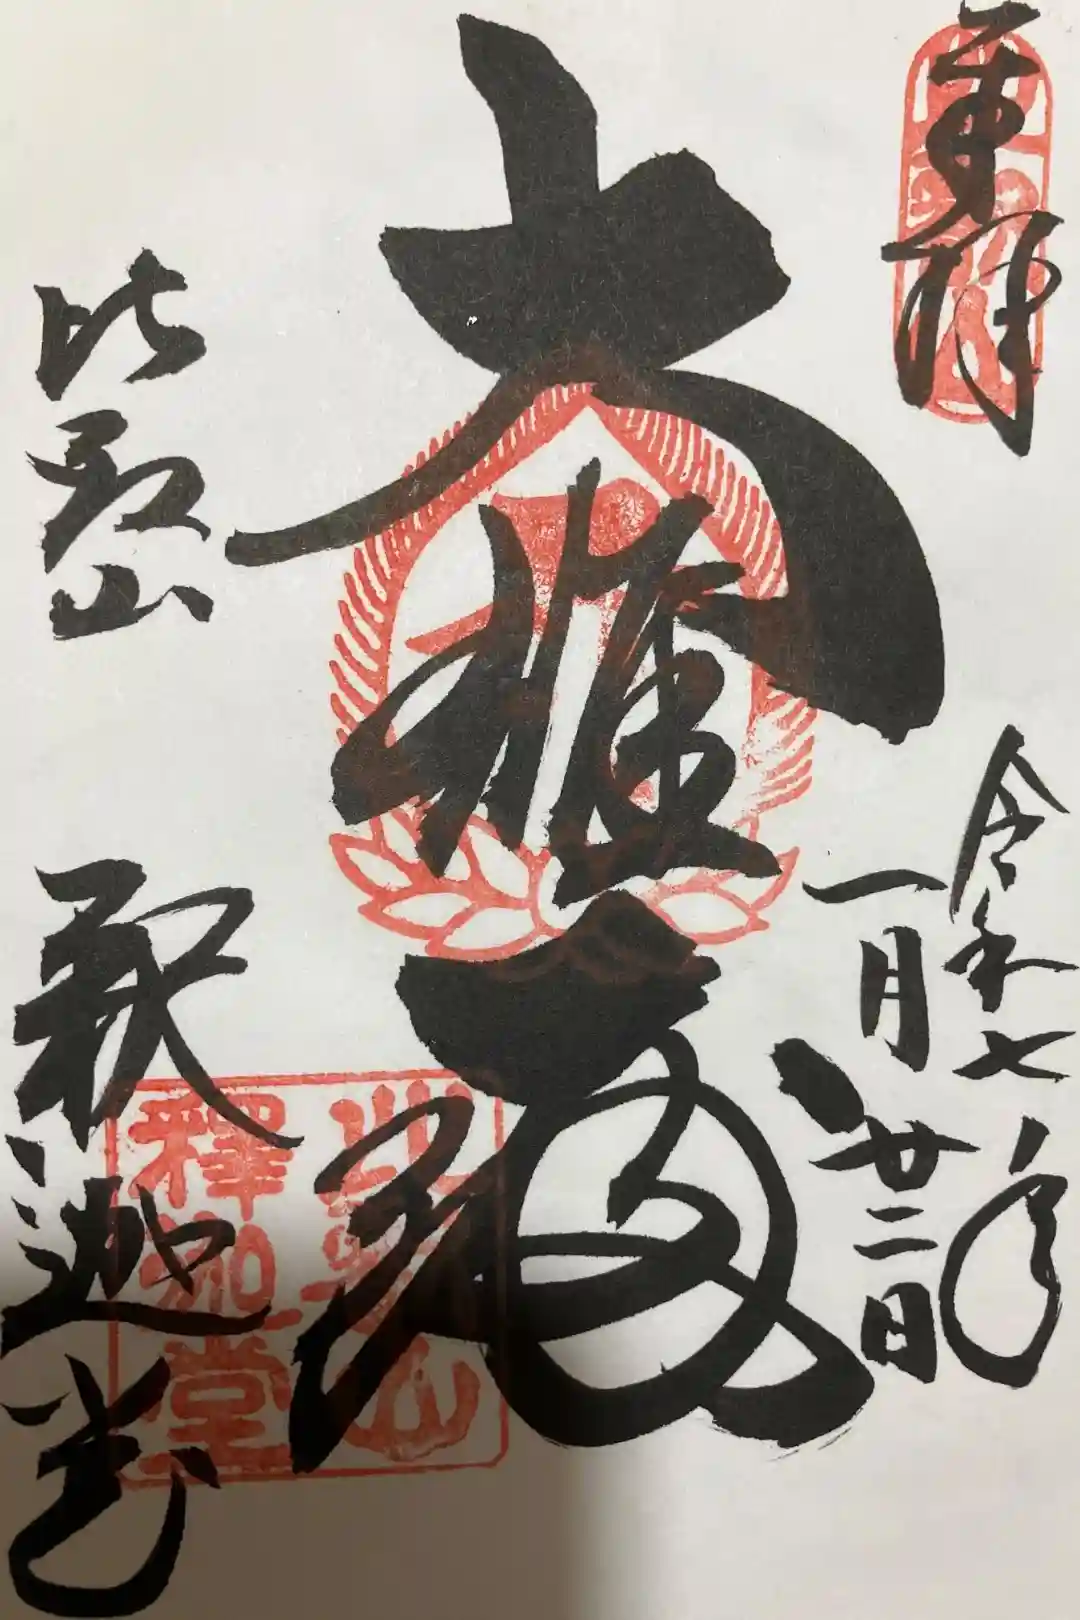 奉拝
令和七年
一月廿二日
大雄殿
比叡山
釈迦堂
比叡山
釋迦堂